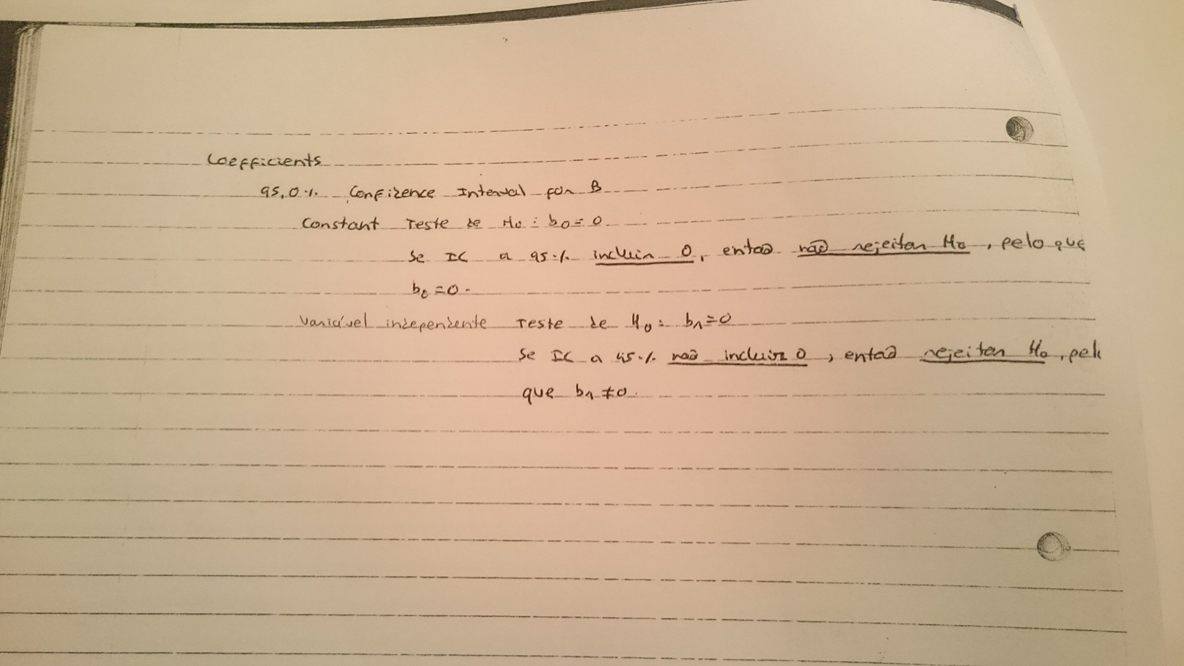 Coefficients
95,0% Confidence Interval for B
Constant Teste de H0: b0=0
Se IC a 95% incluir 0, então não rejeitar H0, pelo que
b0=0.
Variável independente Teste de H0: b1=0
Se IC a 95% não incluir 0, então rejeitar H0, pel
que b1≠0.